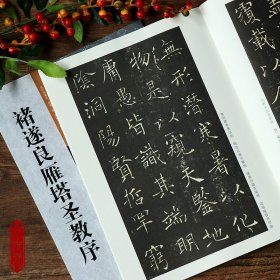 覆載以
無形潛寒暑以化
物是以窺天鑒地
庸愚皆識其端明
陰洞陽賢哲罕窮
褚遂良雁塔圣教序